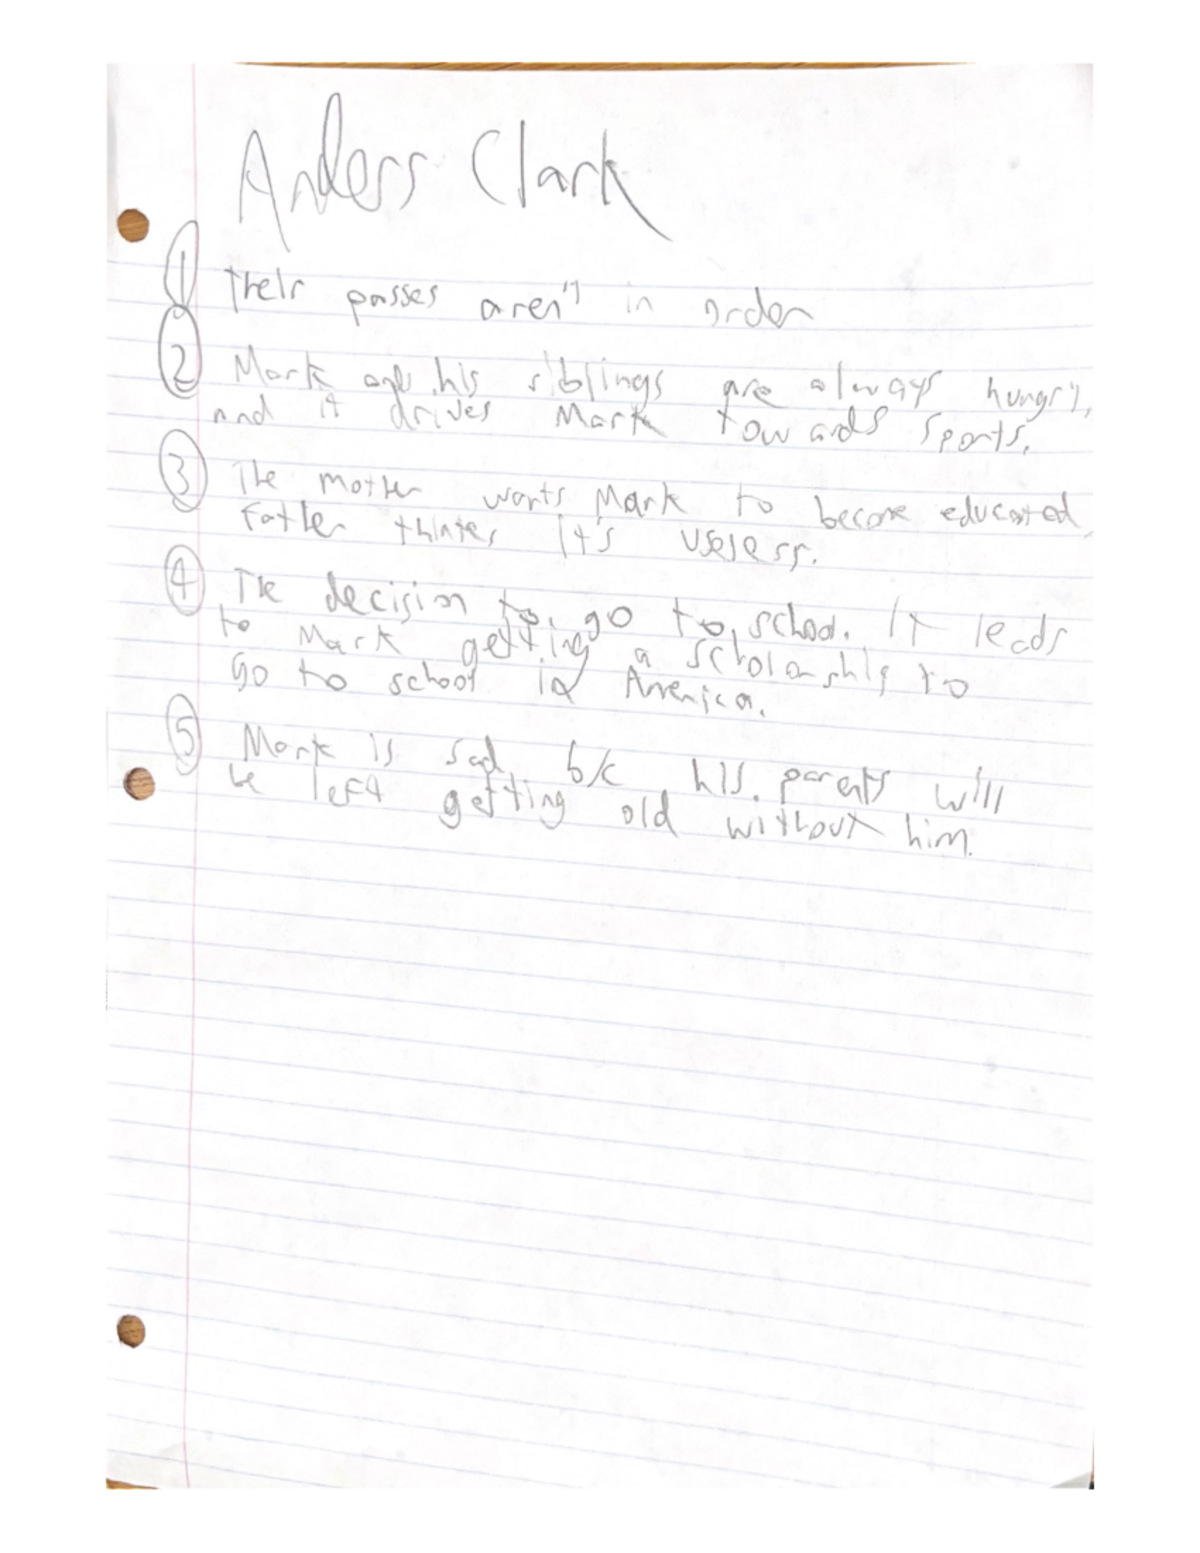 Anders Clark
1 Their passes aren't in order
2 Mark and his siblings are always hungry,
and it drives Mark towards sports.
3 The mother wants Mark to become educated,
Father thinks it's useless.
4 The decision to go to school. It leads
to Mark getting a scholarship to
Go to school in America.
5 Mark is sad b/c his parents will
be left getting old without him.